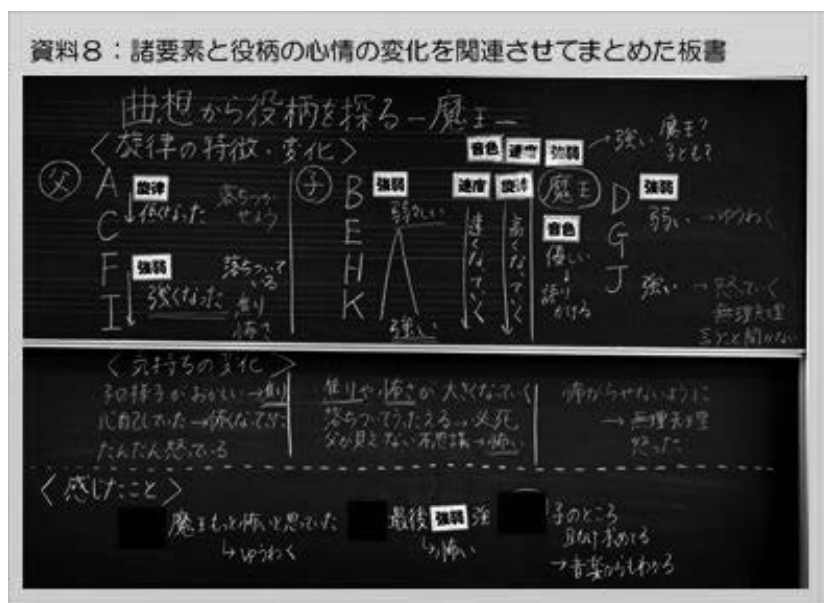 資料8：諸要素と役柄の心情の変化を関連させてまとめた板書
曲想から役柄を探る－魔王－
〈旋律の特徴・変化〉
音色 速度 強弱 →強い 魔王？
子ども？
父
A 旋律
C 低くなった
落ちつか
せよう
F 強弱
I 強くなった
落ちついて
いる
焦り
怖さ
子
B 強弱
弱々しい
E
H
K
強い
速度
速くなっていく
旋律
高くなっていく
魔王
音色
優しい
↓
語り
かける
D 強弱
弱い →ゆうわく
G
J 強い →怒っていく
無理矢理
言うこと聞かない
〈気持ちの変化〉
子の様子がおかしい→焦り
心配していた→怖くなってきた
だんだん怒っている
焦りや怖さが大きくなっていく
落ちついてうったえる→必死
父が見えない不思議→怖い
怖がらせないように
→無理矢理
怒った
〈感じたこと〉
魔王もっと怖いと思っていた
↳ゆうわく
最後 強弱 強
↳怖い
子のところ
助け求めてる
→音楽からもわかる